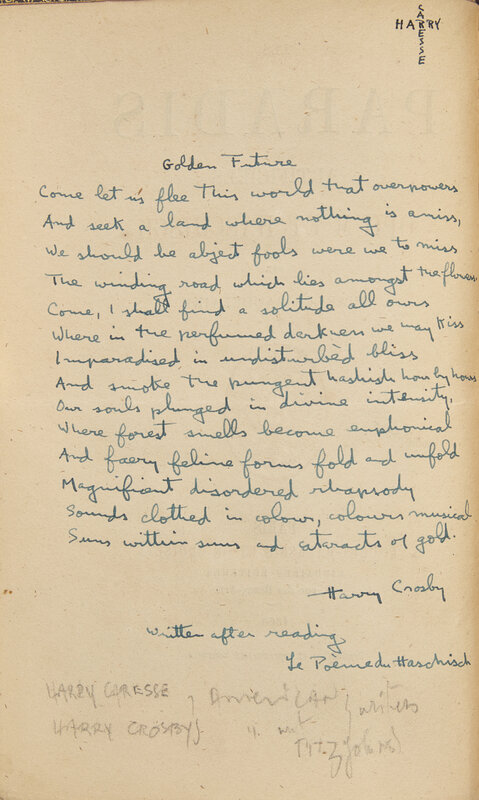 HARRY
CARESSE
Golden Future
Come let us flee this world that overpowers
And seek a land where nothing is amiss,
We should be abject fools were we to miss
The winding road which lies amongst the flowers
Come, I shall find a solitude all ours
Where in the perfumed darkness we may kiss
Imparadised in undisturbèd bliss
And smoke the pungent hashish hour by hour
Our souls plunged in divine intensity,
Where forest smells become euphonical
And faery feline forms fold and unfold
Magnificent disordered rhapsody
Sounds clothed in colour, colours musical
Suns within suns and cataracts of gold.
Harry Crosby
written after reading
Le Poème du Haschisch
HARRY CARESSE, American writers
HARRY CROSBY
PARADIS